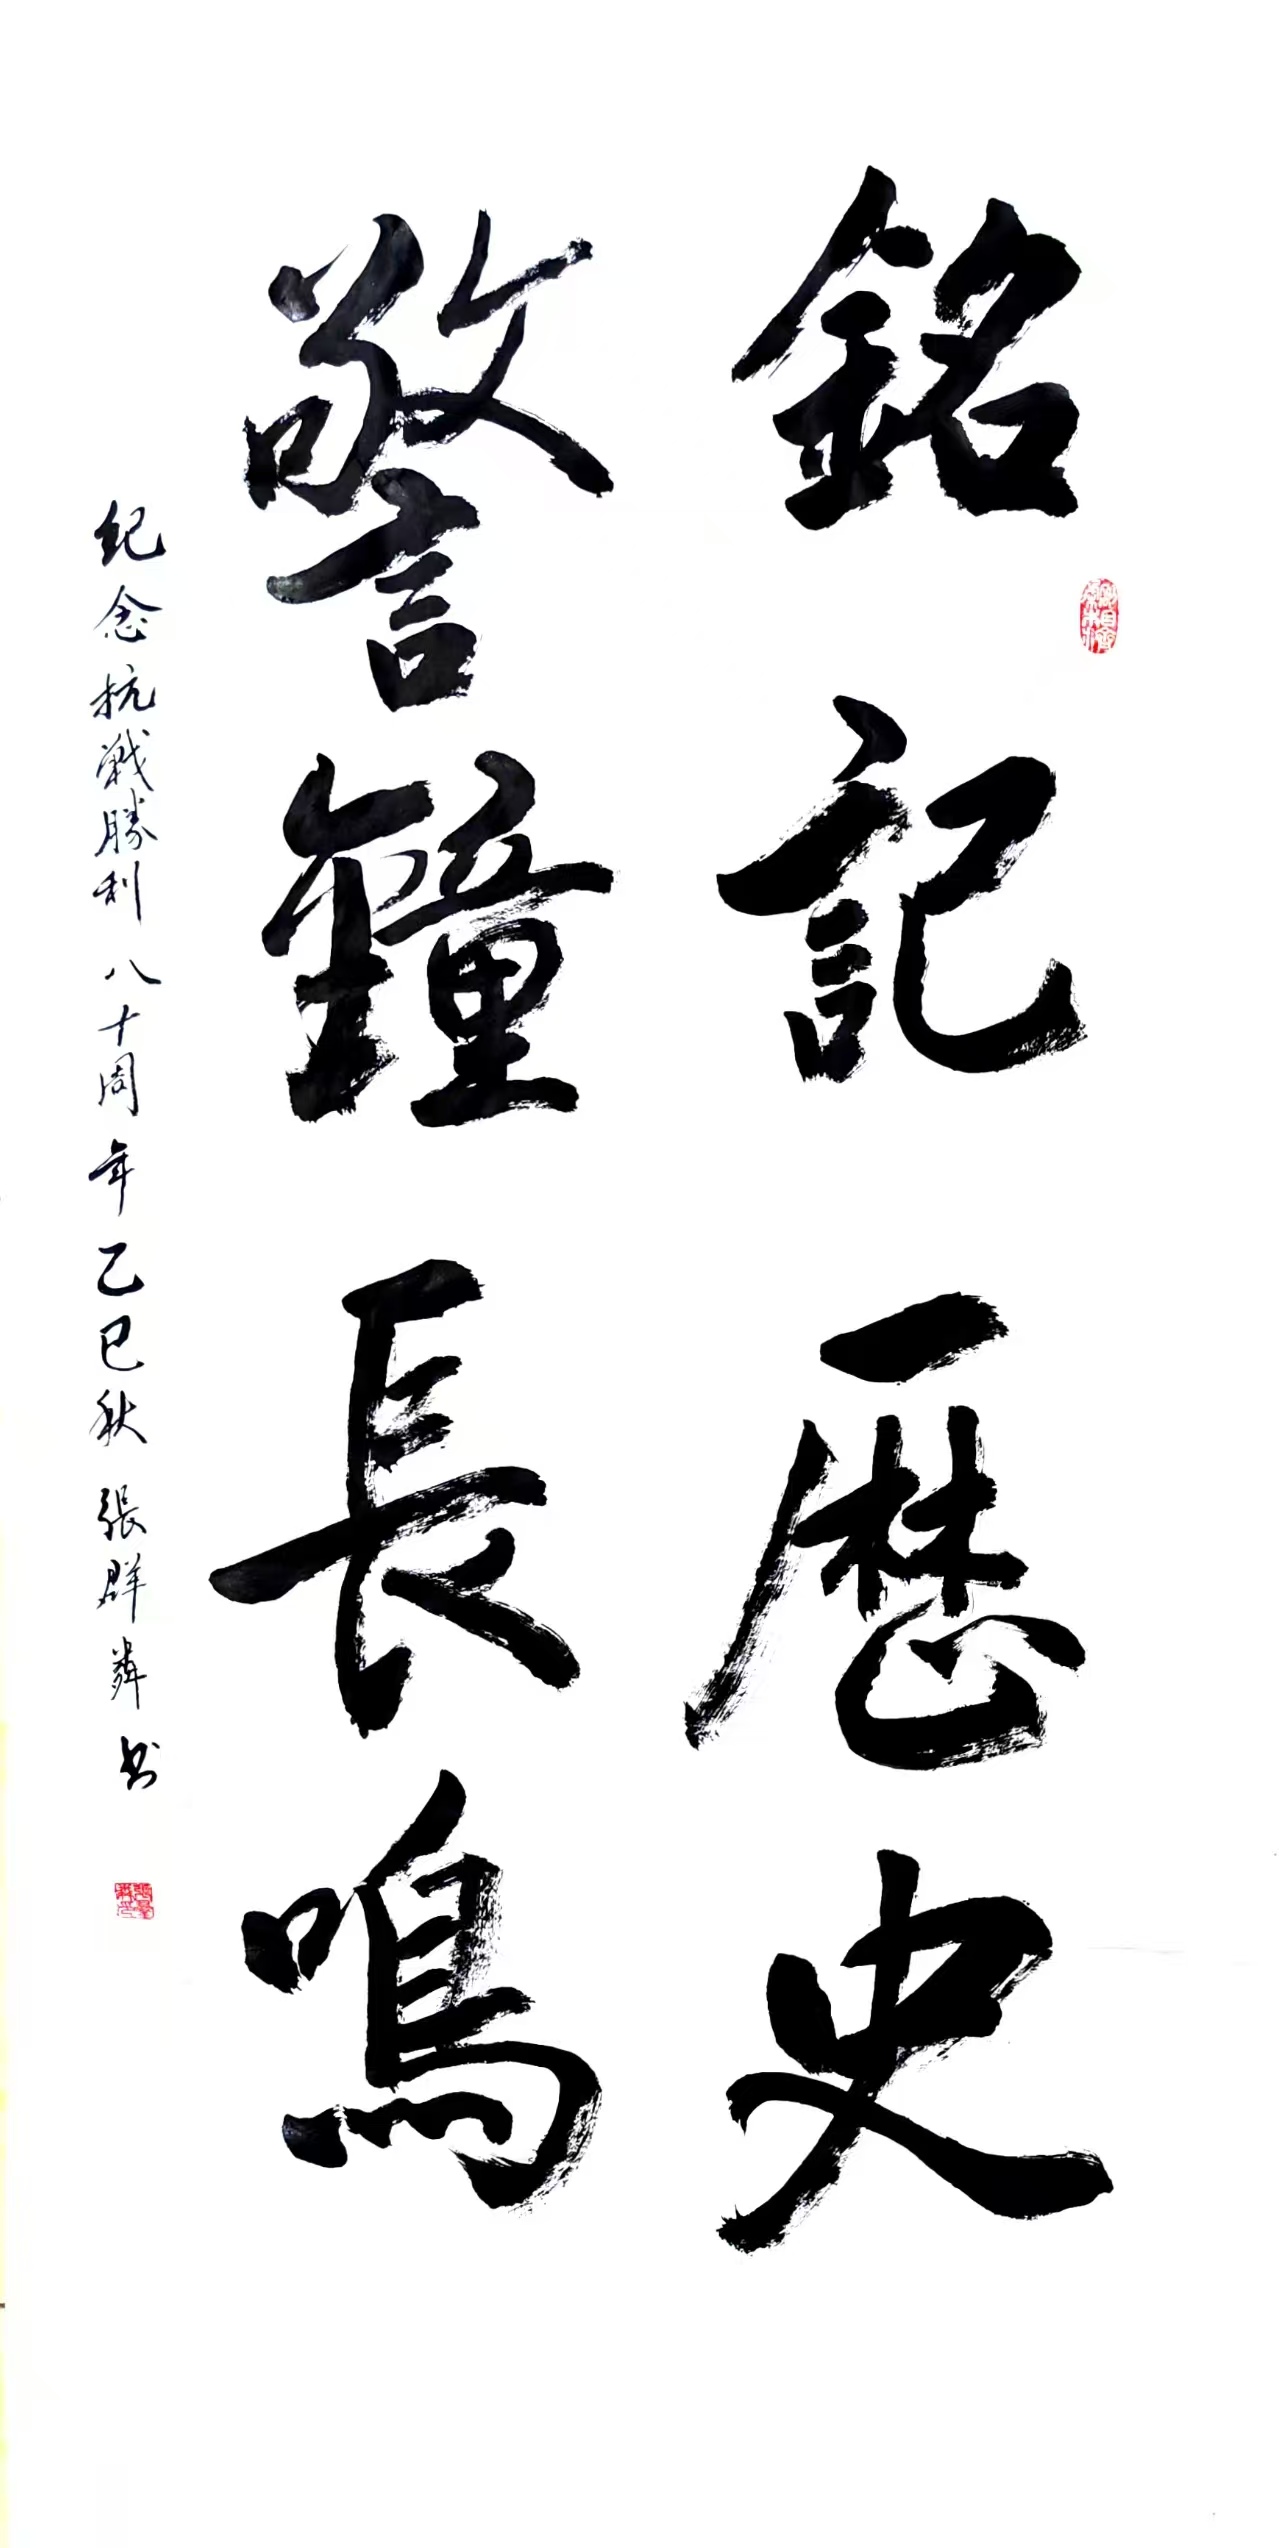 銘記歷史
警鐘長鳴
纪念抗戰勝利八十周年乙巳秋張群粦书